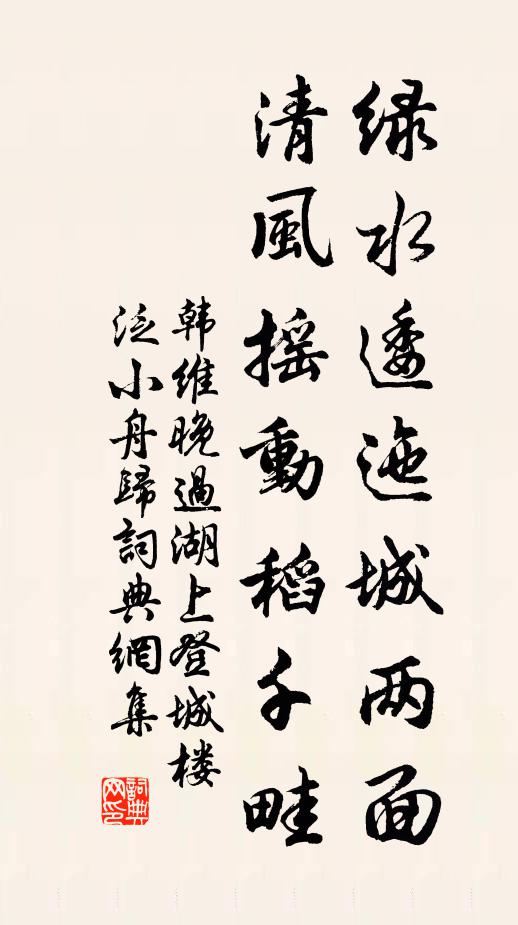 绿水逶迤城两面
清風摇動稻千畦
韩维晚過湖上登城楼
泛小舟歸詞典網集
詞典
网印